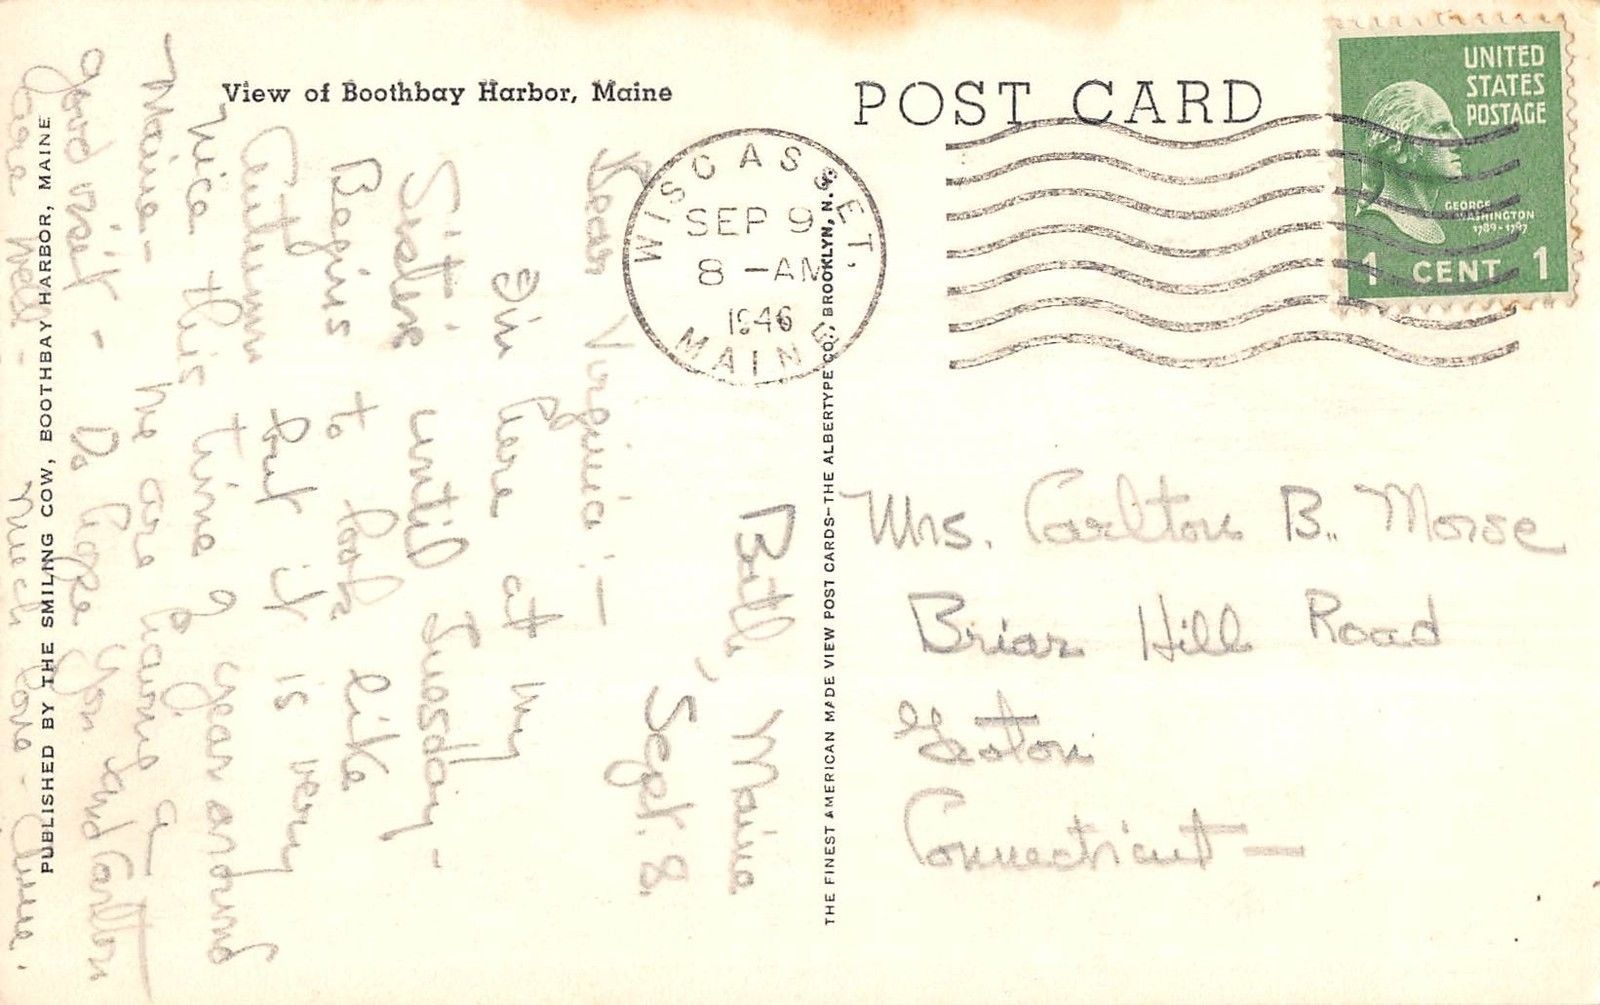 View of Boothbay Harbor, Maine
POST CARD
UNITED
STATES
POSTAGE
GEORGE
WASHINGTON
1789-1797
1 CENT 1
WISCASSET,
SEP 9
8 -AM
1946
MAINE
Bath, Maine
Sept. 8.
Dear Virginia! —
I'm here at my
Sister until Tuesday -
Begins to look like
Autumn but it is very
nice this time of year around
Maine - We are having a
good visit - Do hope you and Carlton
are well -
Much love - Anne.
Mrs. Carlton B. Morse
Briar Hill Road
Easton
Connecticut —
PUBLISHED BY THE SMILING COW, BOOTHBAY HARBOR, MAINE
THE FINEST AMERICAN MADE VIEW POST CARDS—THE ALBERTYPE CO., BROOKLYN, N. Y.